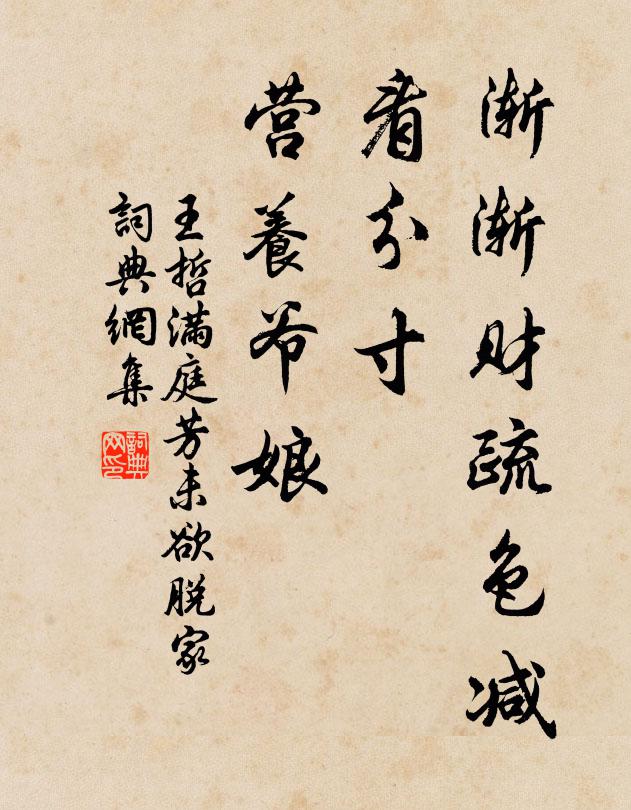 渐渐财疏色减
看分寸
营養爷娘
王哲滿庭芳未欲脱家
詞典網集
詞典网印